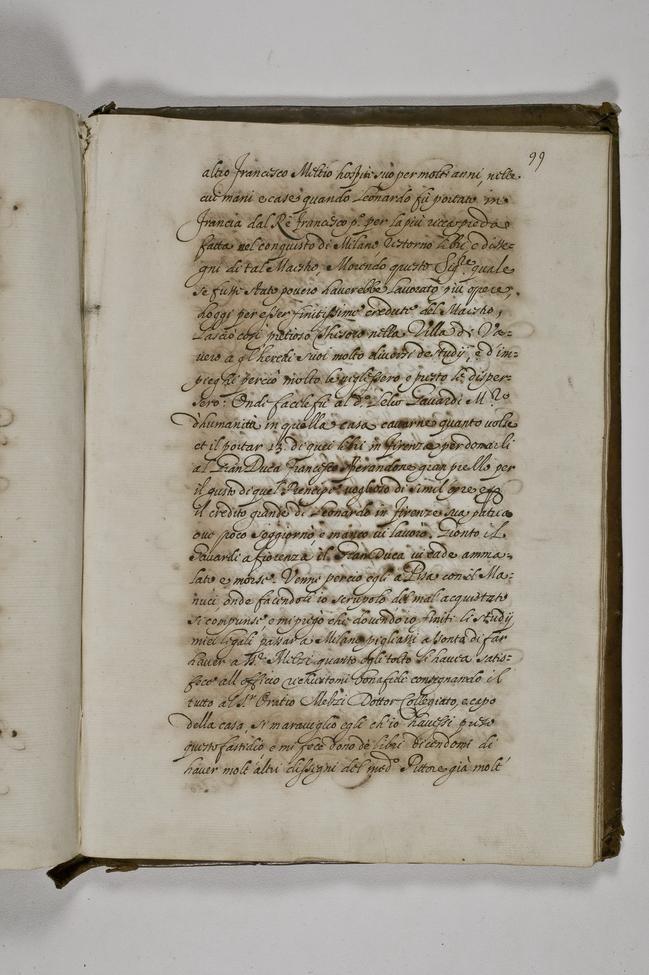 99
altro Francesco Meltio hospite suo per molti anni, nelle
cui mani e case quando Leonardo fù portato in
Francia dal Rè Francesco pº per la più ricca preda
fatta nel conquisto di Milano restorno libri, e disse-
gni di tal Maestro, Morendo questo Sigre quale
se fusse stato povero haverebbe lavorato più opere,
hoggi per esser finitissime credute del Maestro,
lasciò così pretioso Thesoro nella Villa di Va-
vero a gl'heredi suoi molto diversi de studij, e d'im-
pieghi perciò molto lo neglessero e presto lo disper-
sero. Onde facile fù al dº Lelio Gavardi Mro
d'humanità in quella casa cavarne quanto volse
et il portar 13 di quei libri in Firenze per donarli
al Gran Duca Francesco sperandone gran prezzo per
il gusto di quel Principe voglioso di simil opre e
il credito grande di Leonardo in Firenze sua patria
ove poco soggiornò, e manco vi lavorò. Gionto il
Gavardi a Fiorenza il Gran Duca vi cade amma-
lato e morse. Venne perciò egli a Pisa con il Ma-
nuci, onde facendoli io scrupolo del mal acquistato
si compunse e mi pregò che dovendo io finiti li studij
miei legali passar a Milano pigliassi a sonto di far
haver a Melzi quanto egli tolto li havea satis-
feci all officio bonafide consegnando il
tutto al Sr Oratio Melzi Dottor Collegiato, e capo
della casa, Si maravigliò egli ch'io havessi preso
questo fastidio e mi fece dono de libri dicendomi di
haver molt altri dissegni del medº Pittore già molt'